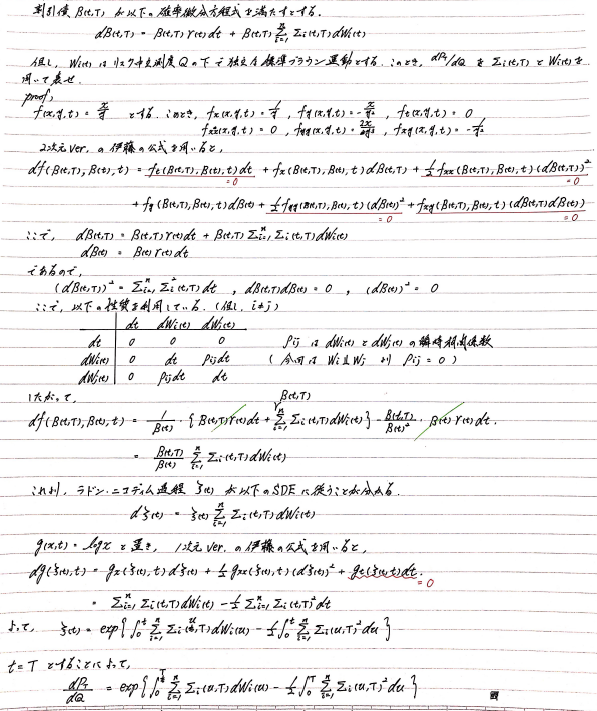 割引債 B(t,T) が以下の確率微分方程式を満たすとする.
dB(t,T) = B(t,T) r(t) dt + B(t,T) Σ_{i=1}^{n} Σi(t,T) dWi(t)
但し, Wi(t) は リスク中立測度 Q の下で独立な標準ブラウン運動とする. このとき, dPT/dQ を Σi(t,T) と Wi(t) を
用いて表せ.
proof)
f(x,y,t) = x/y とする. このとき, fx(x,y,t) = 1/y, fy(x,y,t) = -x/y², ft(x,y,t) = 0
fxx(x,y,t) = 0, fyy(x,y,t) = 2x/y³, fxy(x,y,t) = -1/y²
2次元 ver. の伊藤の公式を用いると,
df(B(t,T),B(t),t) = ft(B(t,T),B(t),t) dt + fx(B(t,T),B(t),t) dB(t,T) + 1/2 fxx(B(t,T),B(t),t) (dB(t,T))²
=0 =0
+ fy(B(t,T),B(t),t) dB(t) + 1/2 fyy(B(t,T),B(t),t) (dB(t))² + fxy(B(t,T),B(t),t) (dB(t,T)dB(t))
=0 =0
ここで, dB(t,T) = B(t,T) r(t) dt + B(t,T) Σ_{i=1}^{n} Σi(t,T) dWi(t)
dB(t) = B(t) r(t) dt
であるので,
(dB(t,T))² = Σ_{i=1}^{n} Σi²(t,T) dt , dB(t,T)dB(t) = 0 , (dB(t))² = 0
ここで, 以下の性質を利用している. (但し, i≠j)
dt dWi(t) dWj(t)
dt 0 0 0 ρij は dWi(t) と dWj(t) の瞬時相関係数
dWi(t) 0 dt ρijdt ( 今回は Wi⫫Wj より ρij = 0 )
dWj(t) 0 ρijdt dt
したがって,
B(t,T)
df(B(t,T),B(t),t) = 1/B(t) · { B(t,T)r(t)dt + Σ_{i=1}^{n} Σi(t,T) dWi(t) } - B(t,T)/B(t)² · B(t) r(t) dt.
= B(t,T)/B(t) Σ_{i=1}^{n} Σi(t,T) dWi(t)
これより, ラドン・ニコディム過程 ξ(t) が以下の SDE に従うことが分かる.
dξ(t) = ξ(t) Σ_{i=1}^{n} Σi(t,T) dWi(t)
g(x,t) = log x と置き, 1次元 ver. の伊藤の公式を用いると,
dg(ξ(t),t) = gx(ξ(t),t) dξ(t) + 1/2 gxx(ξ(t),t) (dξ(t))² + gt(ξ(t),t) dt.
=0
= Σ_{i=1}^{n} Σi(t,T) dWi(t) - 1/2 Σ_{i=1}^{n} Σi(t,T)² dt
よって, ξ(t) = exp{ ∫_0^t Σ_{i=1}^{n} Σi(u,T) dWi(u) - 1/2 ∫_0^t Σ_{i=1}^{n} Σi(u,T)² du }
t = T とすることによって,
dPT/dQ = exp{ ∫_0^T Σ_{i=1}^{n} Σi(u,T) dWi(u) - 1/2 ∫_0^T Σ_{i=1}^{n} Σi(u,T)² du }